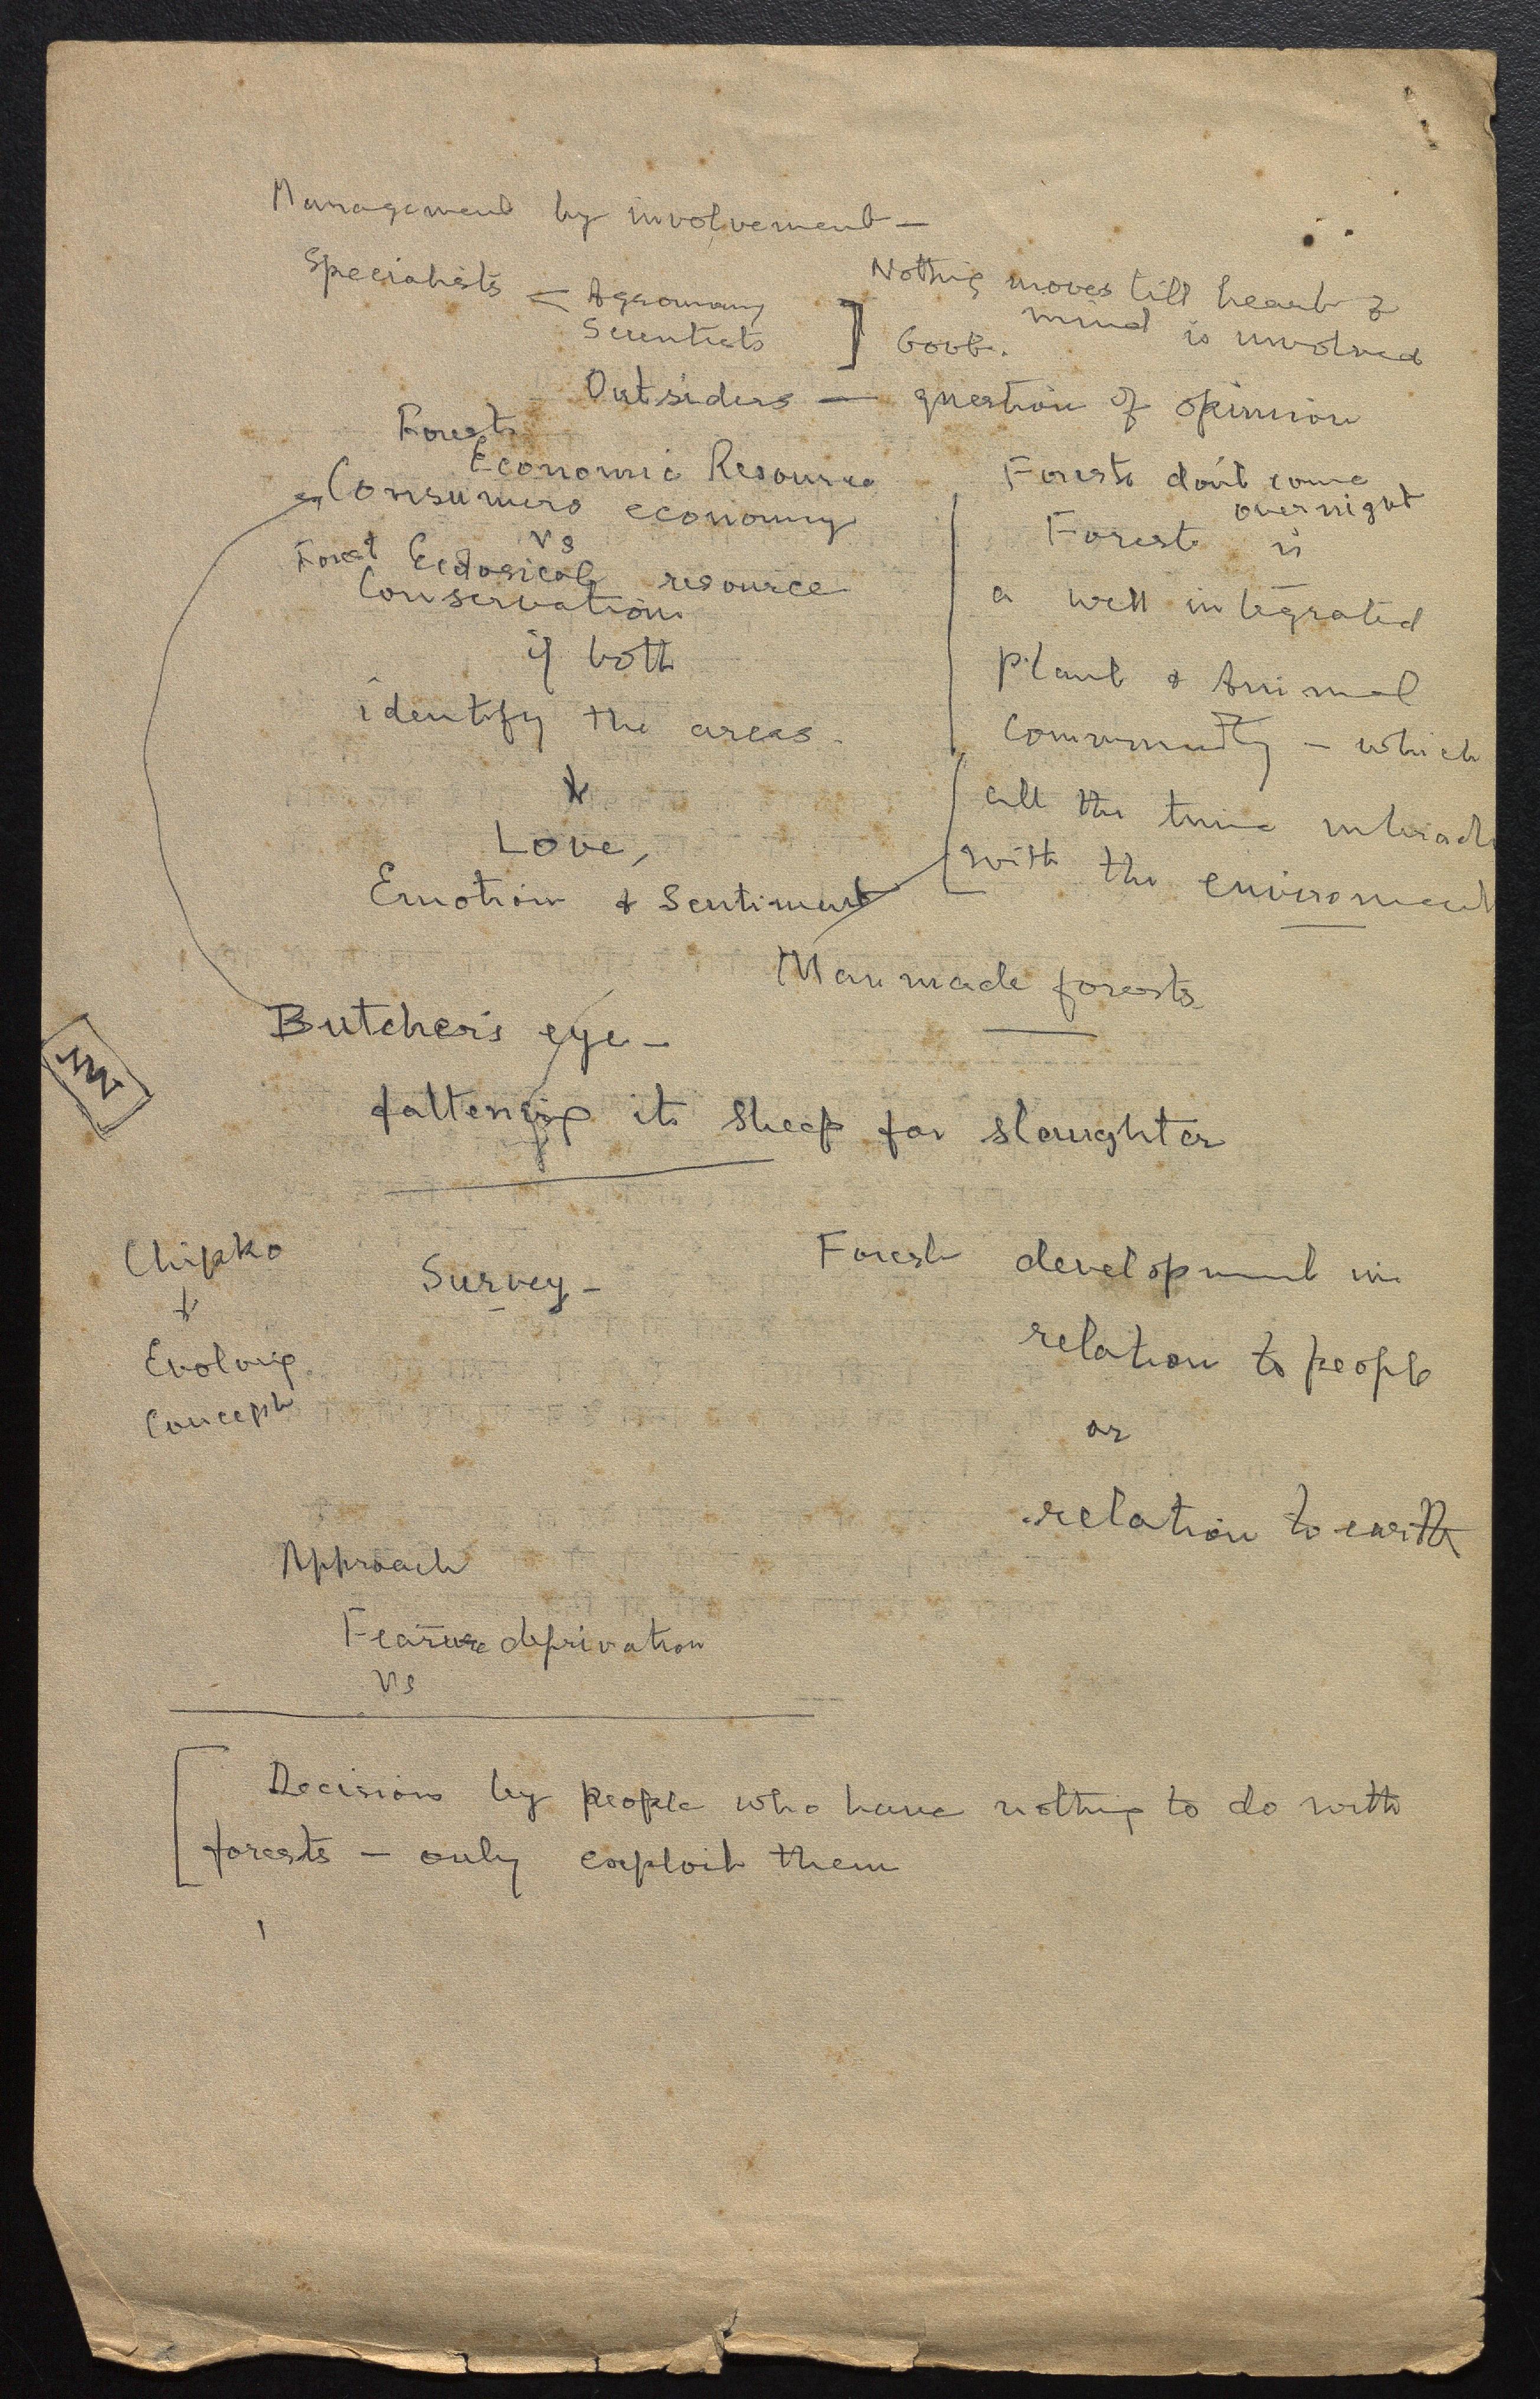 Management by involvement —
Specialists < Agronomy
Scientists ] Govt.
Nothing moves till heart &
mind is involved
Outsiders — question of opinion
Forest
Economic Resource
Consumers economy
vs
Forest Ecological resource
Conservation
if both
identify the areas.
Love,
Emotion & Sentiment
Forests don't come
overnight
Forest is
a well integrated
Plant & Animal
Community — which
all the time interacts
with the enviroment
Man made forests
Butcher's eye —
fattening its sheep for slaughter
Chipko
Evolving
Concept
Survey —
Forest development in
relation to people
or
relation to earth
Approach
deprivation
vs
Decisions by people who have nothing to do with
forests — only exploit them